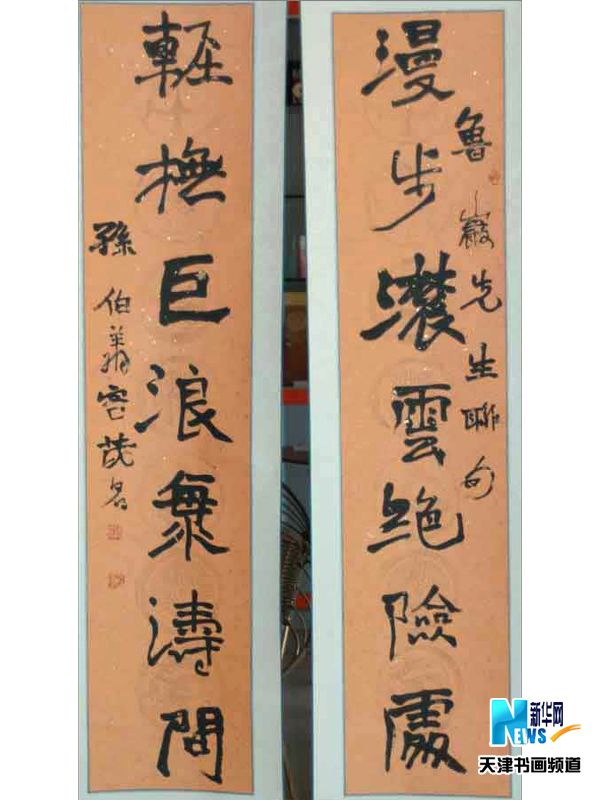 漫步濃雲絶險處
魯巖先生聯句
輕撫巨浪濤間
孫伯翔客茂名
新华网
NEWS
天津书画频道